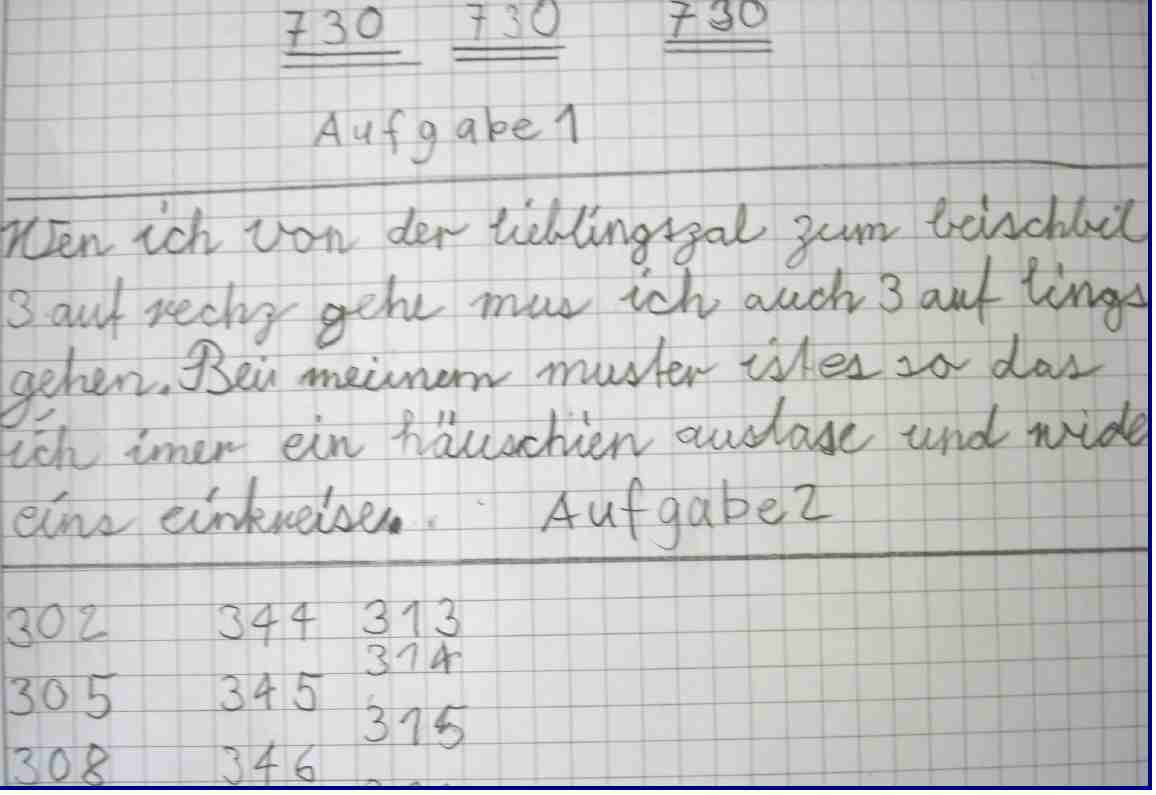 730 730 730
Aufgabe 1
Wen ich von der lieblingszal zum beischbil
3 auf rechz gehe mus ich auch 3 auf lings
gehen. Bei meinem muster ist es so das
ich imer ein häuschien auslase und wide
eins einkreise.
Aufgabe 2
302 344 313
314
305 345
315
308 346